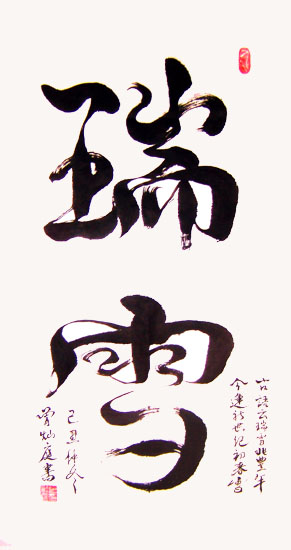 瑞雪
古語云瑞雪兆豐年
今逢新世紀初春雪
己丑仲冬
曾灿庭書